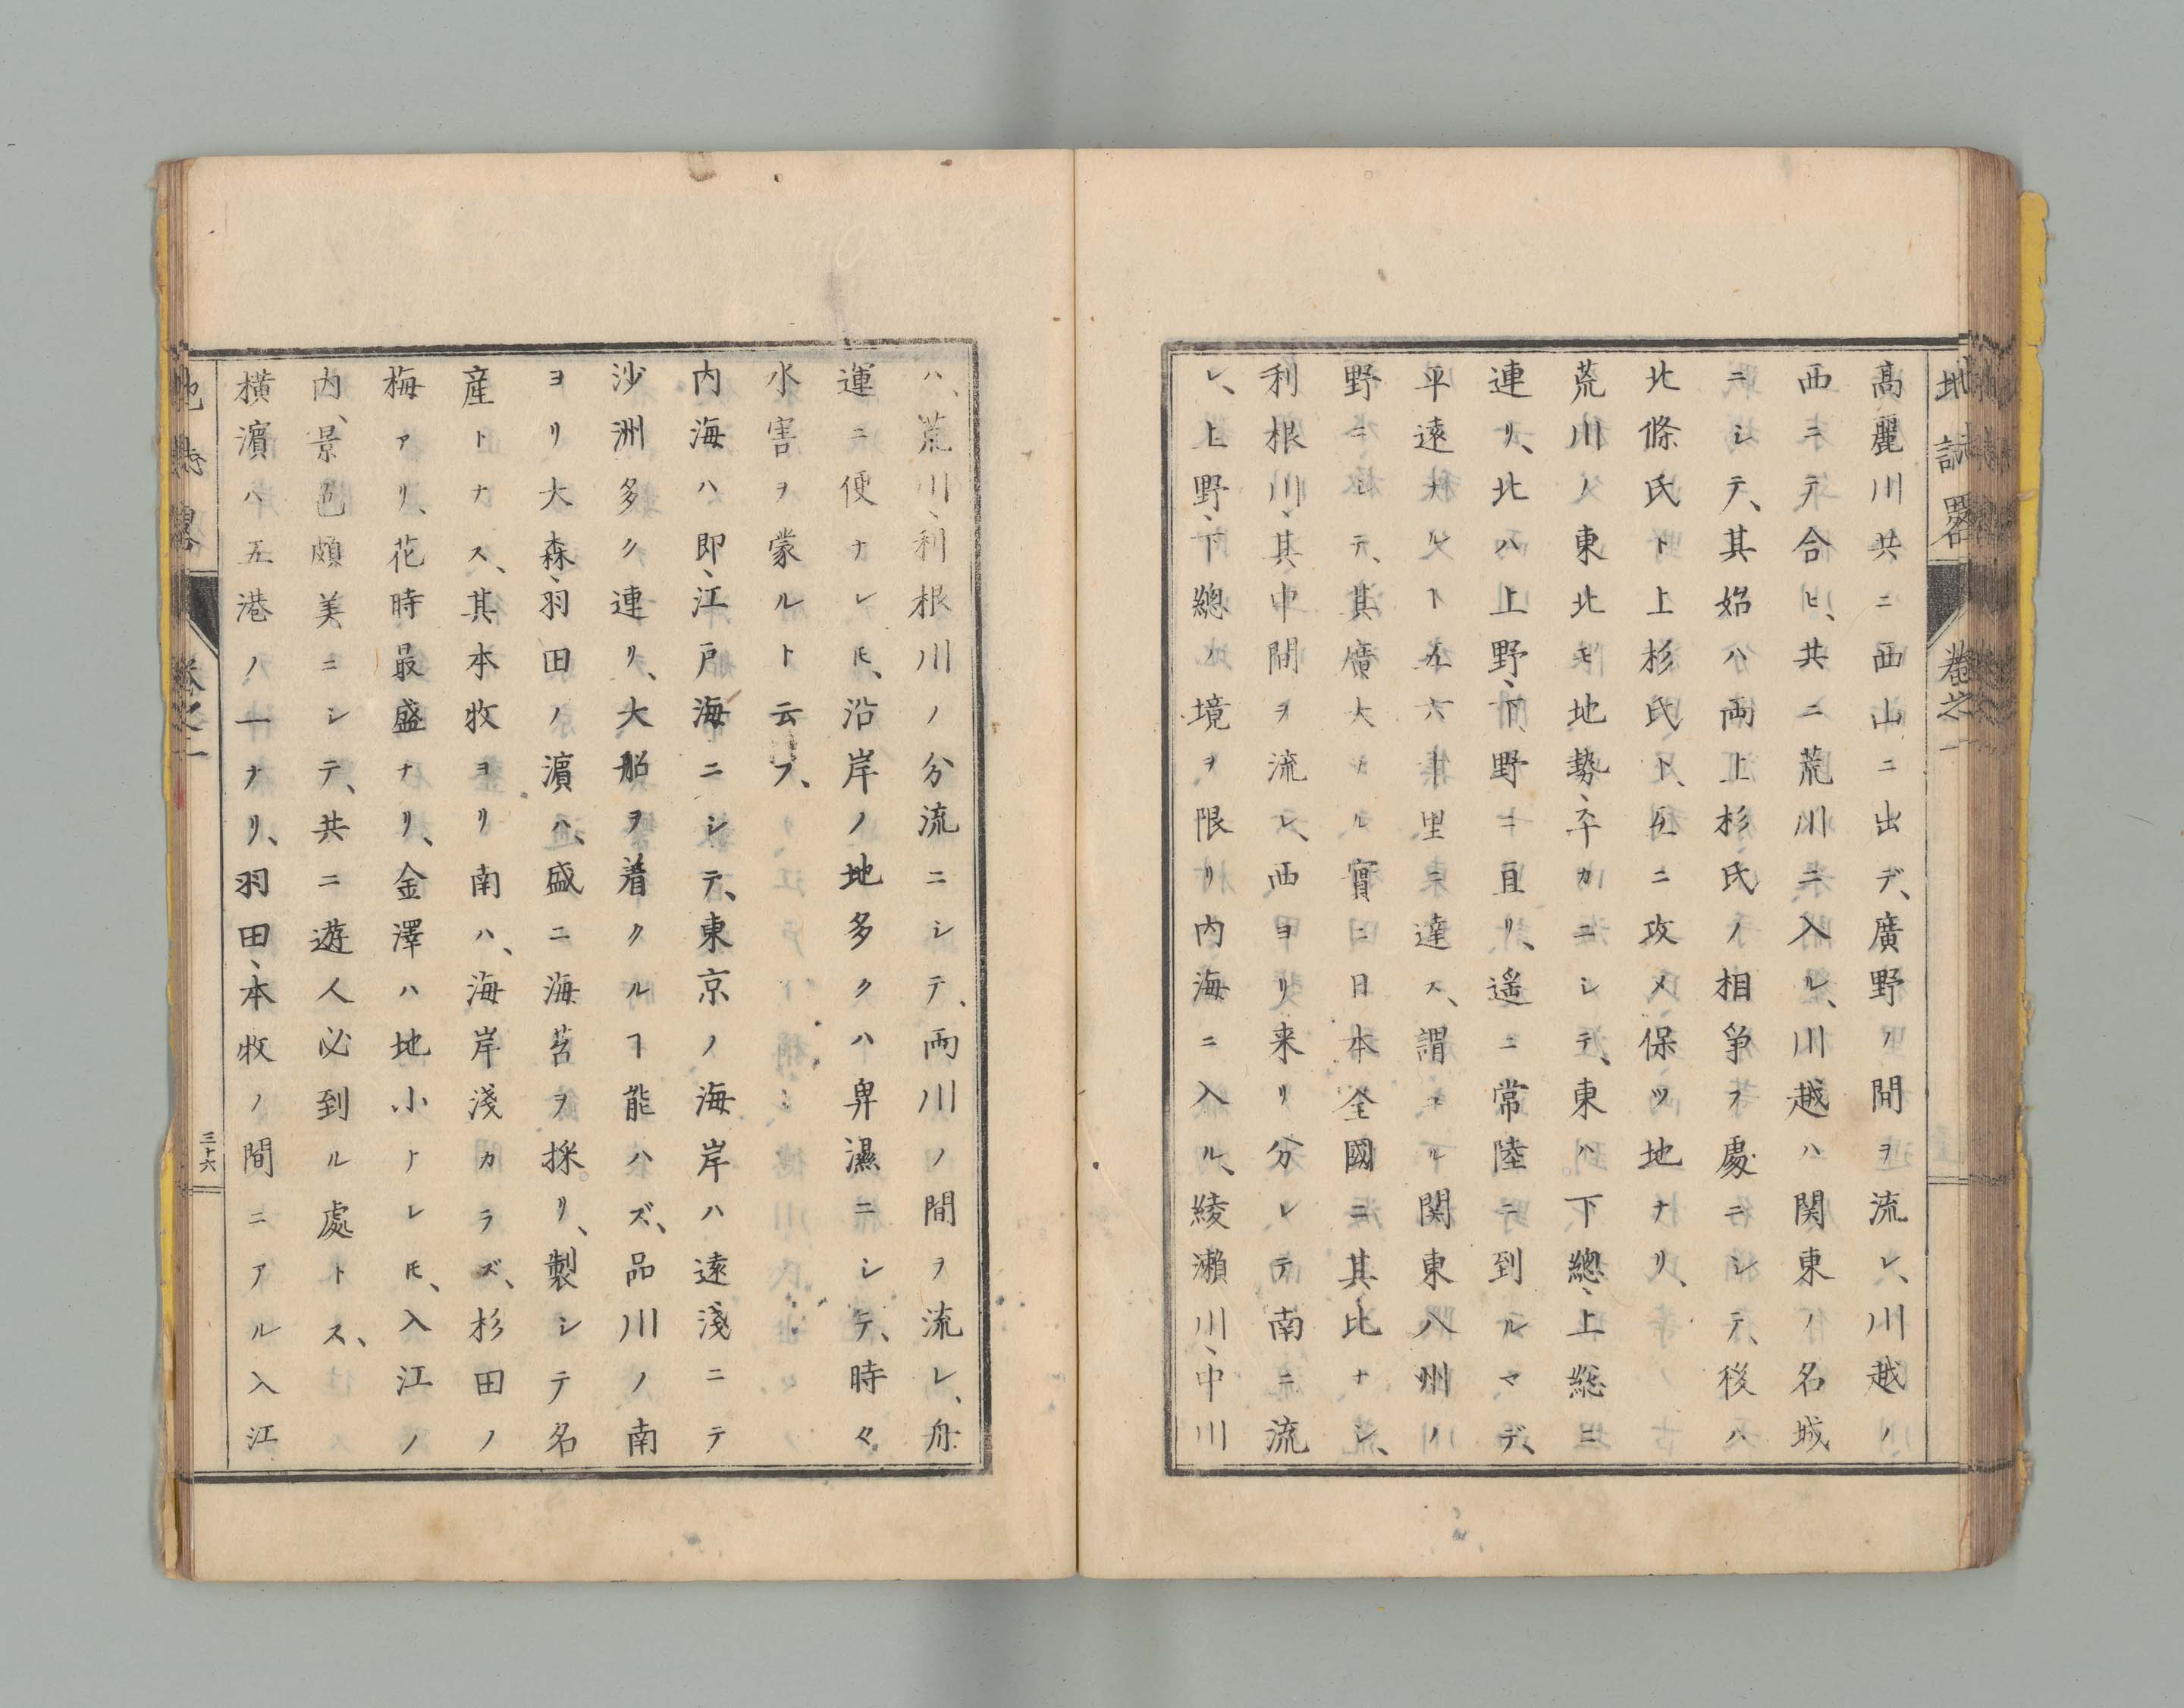 地誌畧 巻之一
高麗川共ニ西山ニ出デ、廣野ノ間ヲ流レ、川越ノ
西ニテ合ヒ、共ニ荒川ニ入ル、川越ハ関東ノ名城
ニシテ、其始ハ両上杉氏ノ相争ヲ處ニシテ、後ハ
北條氏ト上杉氏ト、互ニ攻メ保ツ地ナリ、
荒川ノ東北モ地勢、卒カニシテ、東ハ下總、上総ニ
連リ、北ハ上野、下野ニ亘リ、遙ニ常陸ニ到ルマデ、
平遠ナルヿ五六十里ニ達ス、謂ユル関東八州ノ
野ニシテ、其廣大ナル實ニ日本全國ニ其比ナシ、
利根川、其中間ヲ流レ、西ヨリ来リ分レテ南ニ流
レ、上野、下總ノ境ヲ限リ内海ニ入ル、綾瀬川、中川
ハ、荒川、利根川ノ分流ニシテ、両川ノ間ヲ流レ、舟
運ニ便ナレㇳ゙モ、沿岸ノ地多クハ卑濕ニシテ、時々
水害ヲ蒙ルト云フ、
内海ハ即、江戸海ニシテ、東京ノ海岸ハ遠淺ニテ
沙洲多ク連リ、大船ヲ着クルヿ能ハズ、品川ノ南
ヨリ大森、羽田ノ濱ハ、盛ニ海苔ヲ採リ、製シテ名
産トナス、其本牧ヨリ南ハ、海岸淺カラズ、杉田ノ
梅アリ、花時最盛ナリ、金澤ハ地小ナレㇳ゙モ、入江ノ
内、景色頗美ニシテ、共ニ遊人必到ル處トス、
横濱ハ五港ノ一ナリ、羽田、本牧ノ間ニアル入江
三十六